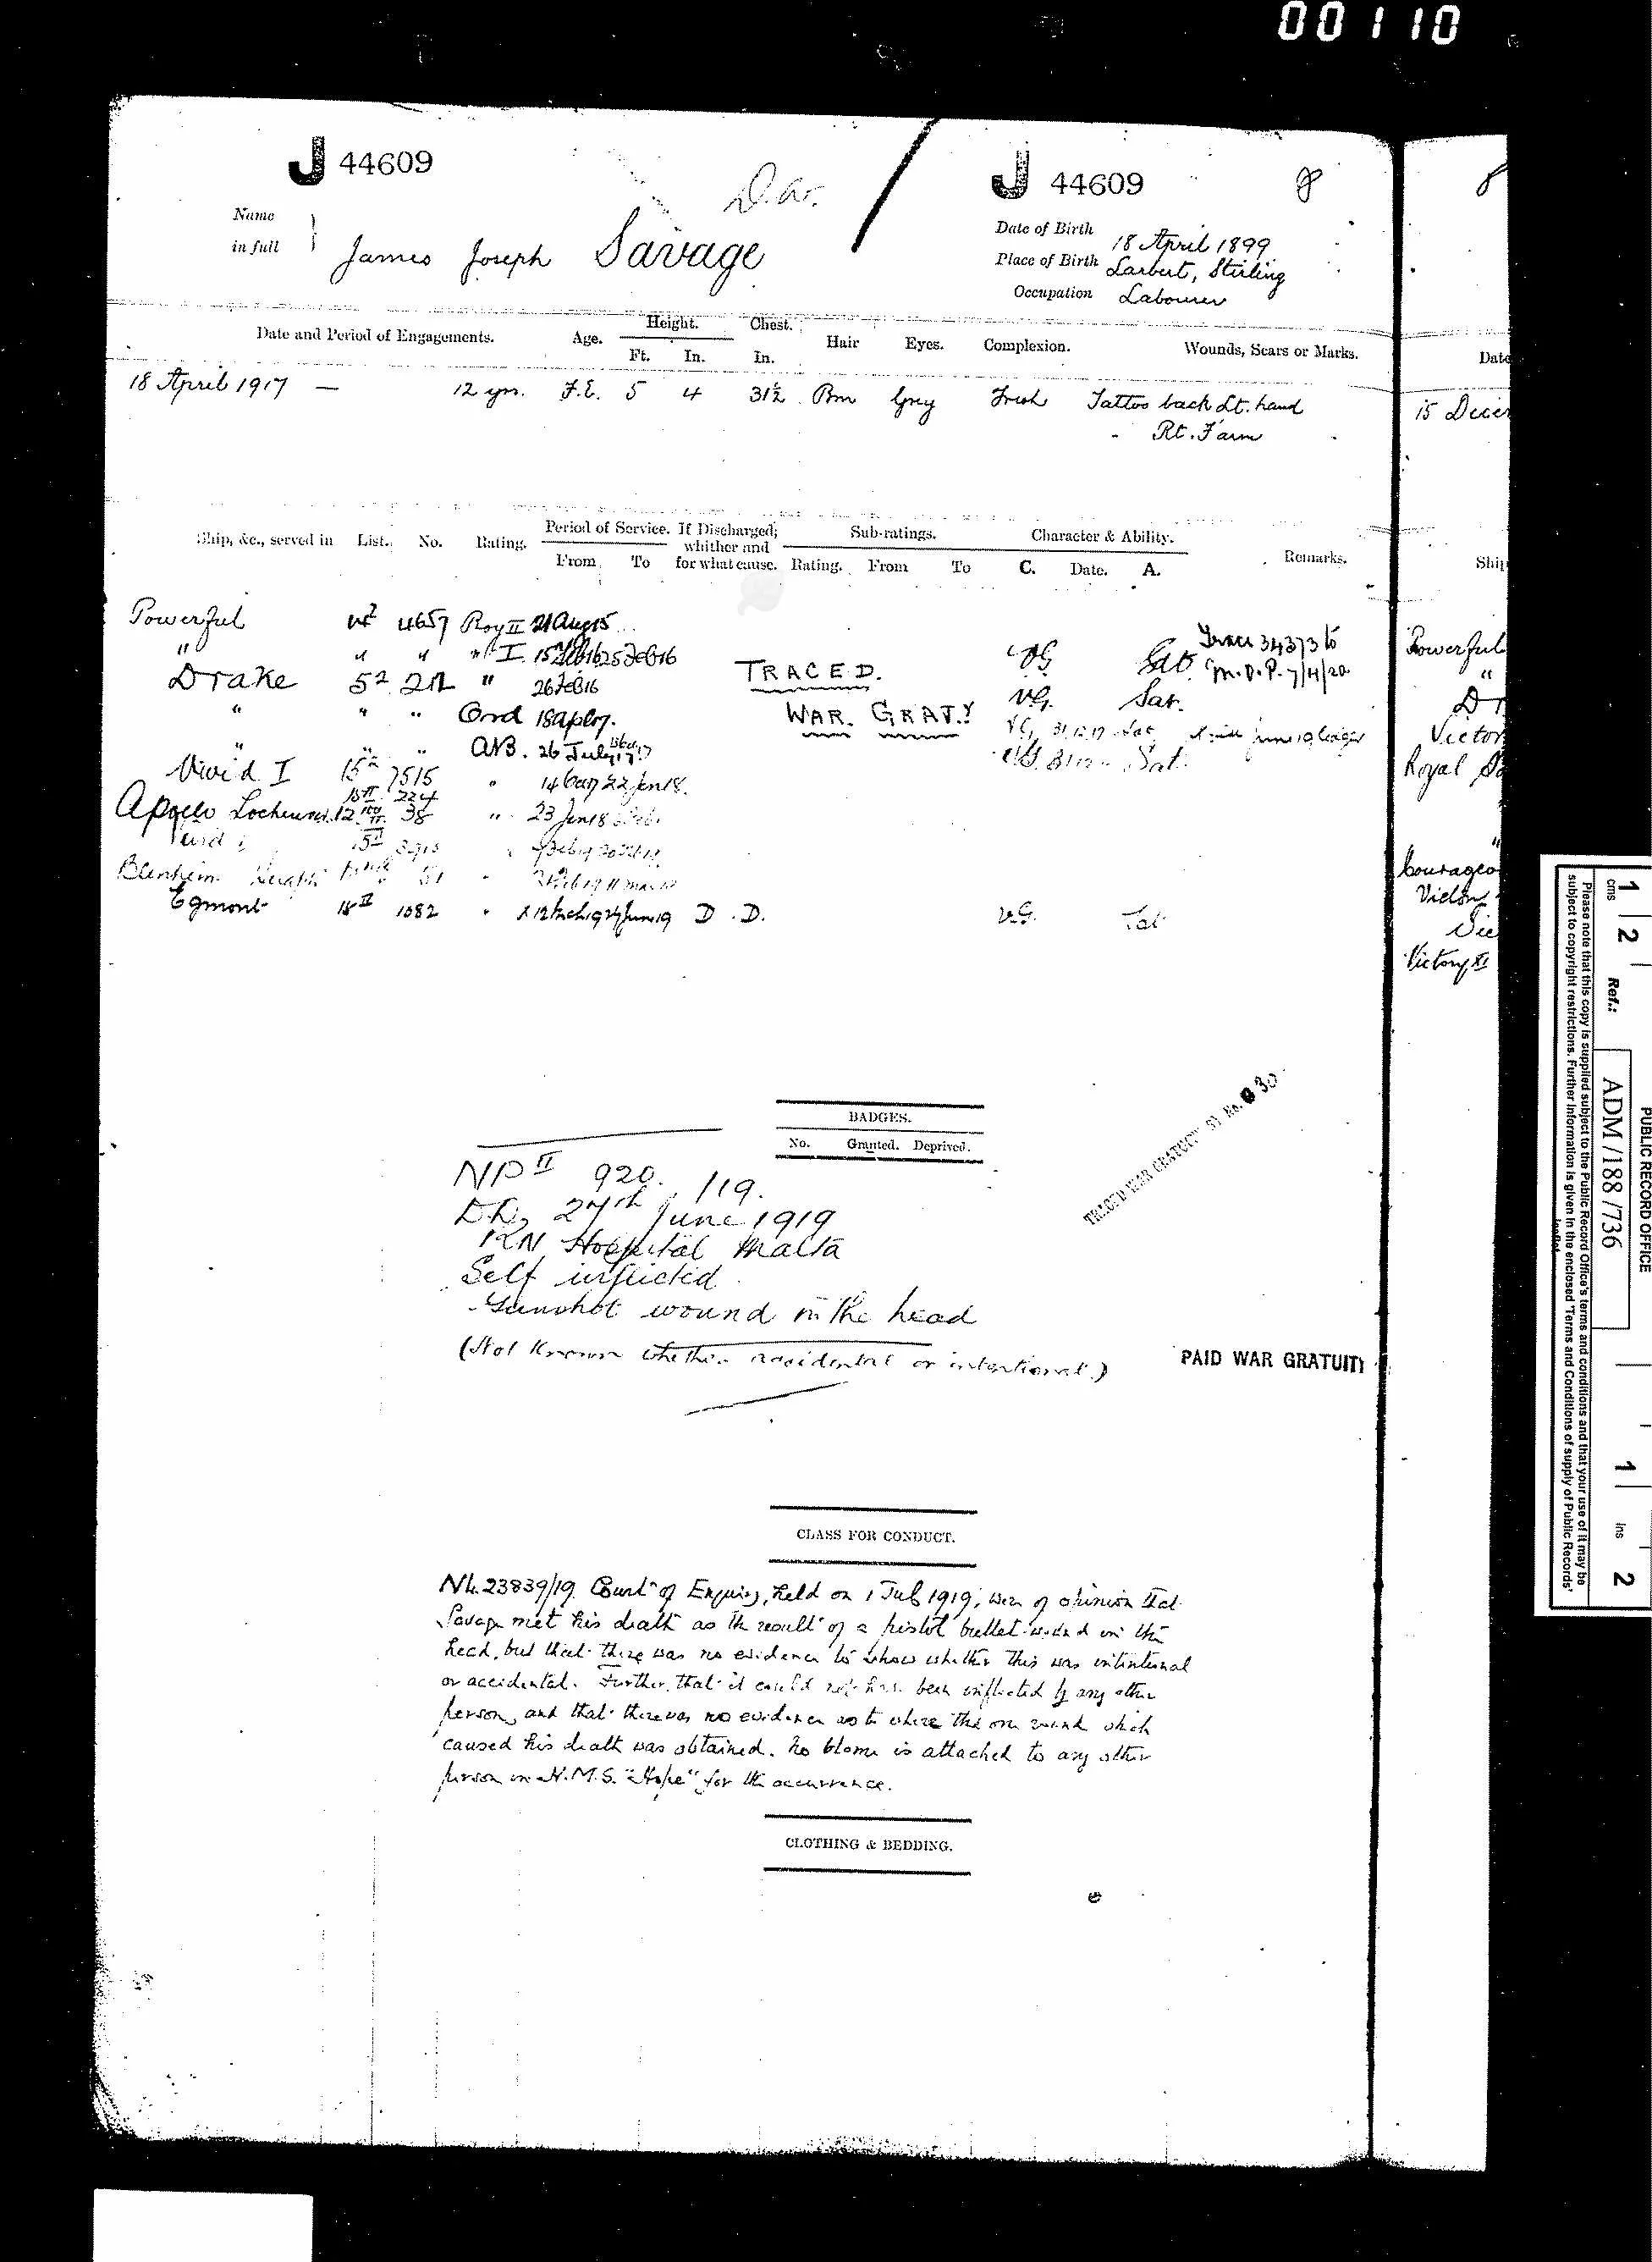 00110
J 44609
D.W.
J 44609
8
Name in full } James Joseph Savage
Date of Birth 18 April 1899
Place of Birth Larbert, Stirling
Occupation Labourer
Date and Period of Engagements. Age. Height. Ft. In. Chest. In. Hair Eyes. Complexion. Wounds, Scars or Marks.
18 April 1917 — 12 yrs. F.E. 5 4 31½ Brn Grey Fresh Tattoo back Lt. hand
Rt. F'arm
Ship, &c., served in List. No. Rating. Period of Service. From To If Discharged; whither and for what cause. Sub-ratings. Rating. From To Character & Ability. C. Date. A. Remarks.
Powerful 4657 Boy II 21 Aug 15
" " " " I 15 Feb 16 25 Feb 16 VG Sat
Drake 5² " 26 Feb 16 TRACED. VG. Sat.
M.D.P. 7/4/20
" " " Ord 18 Apl 17. WAR. GRATY VG 31.12.17 Sat
" " " AB. 26 July 17 VG Sat.
Vivid I 15 7515 " 22 Jan 18.
15II 224
Apollo 38 " 23 Jan 18
Vivid I
Blenheim
Egmont 18II 1082 " 12 Mch 19 27 June 19 D.D. VG. Sat
BADGES.
No. Granted. Deprived.
TRACED WAR GRATUITY
NP II 920. /19.
DD, 27th June 1919
RN Hospital Malta
Self inflicted
Gunshot wound in the head
(Not Known whether accidental or intentional.)
PAID WAR GRATUITY
CLASS FOR CONDUCT.
NL.23839/19 Court of Enquiry, held on 1 July 1919, were of opinion that
Savage met his death as the result of a pistol bullet wound in the
head, but that there was no evidence to show whether this was intentional
or accidental. Further, that it could not have been inflicted by any other
person, and that there was no evidence as to where the one wound which
caused his death was obtained. No blame is attached to any other
person in H.M.S. "Hope" for the occurrence.
CLOTHING & BEDDING.
8
Date
15 Decem
Ship
Powerful
"
Dr
Victor
Royal
"
Courageo
Victory
Vic
Victory XI
PUBLIC RECORD OFFICE
1 2 cms Ref.: ADM/188/736 1 ins 2
Please note that this copy is supplied subject to the Public Record Office's terms and conditions and that your use of it may be
subject to copyright restrictions. Further information is given in the enclosed 'Terms and Conditions of supply of Public Records'
leaflet